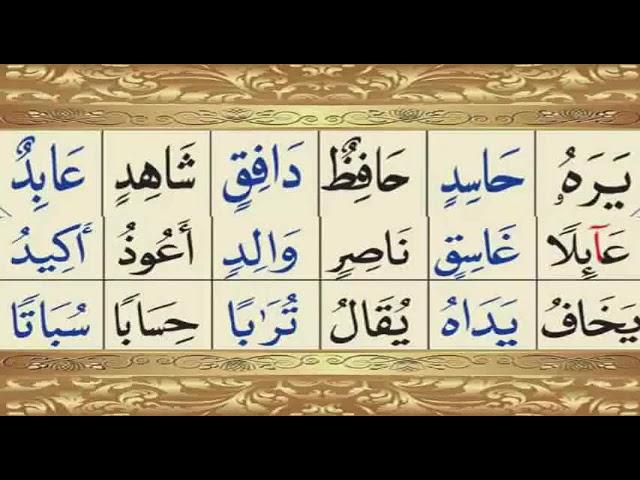 يَرَهُۥ حَاسِدٍ حَافِظٌ دَافِقٍ شَاهِدٍ عَابِدٌ
عَآئِلًا غَاسِقٍ نَاصِرٍ وَالِدٍ أَعُوذُ أَكِيدُ
يَخَافُ يَدَاهُ يُقَالُ تُرَٰبًا حِسَابًا سُبَاتًا